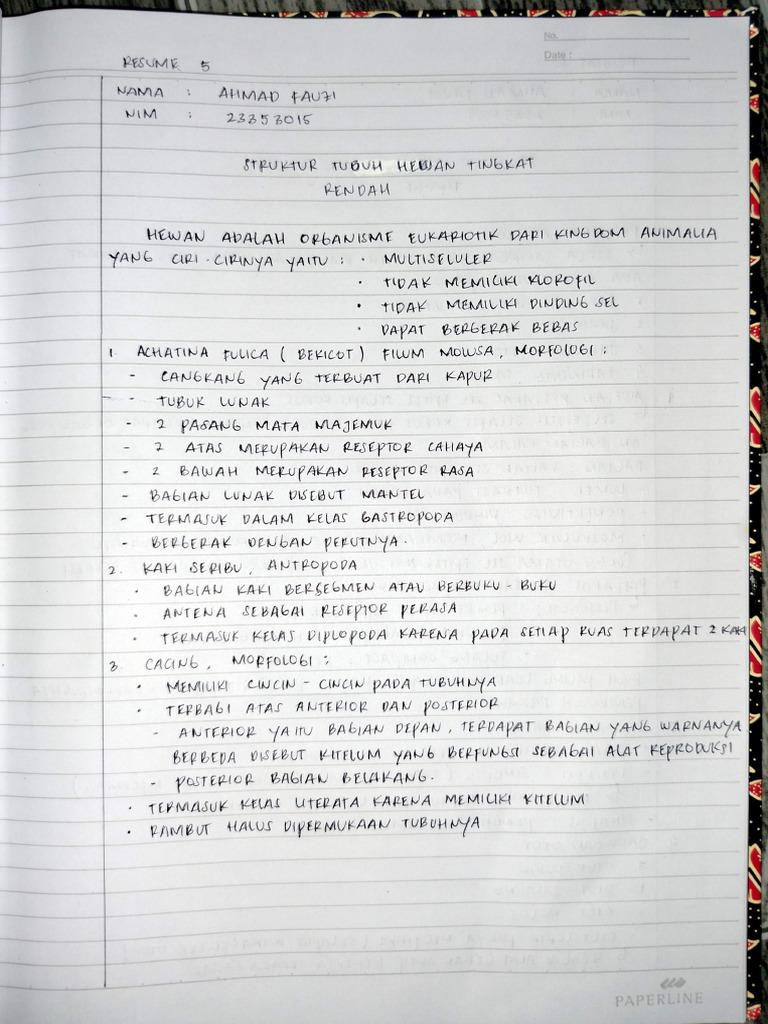 No.
Date :
RESUME 5
NAMA : AHMAD FAUZI
NIM : 23353015
STRUKTUR TUBUH HEWAN TINGKAT
RENDAH
HEWAN ADALAH ORGANISME EUKARIOTIK DARI KINGDOM ANIMALIA
YANG CIRI-CIRINYA YAITU : • MULTISELULER
• TIDAK MEMILIKI KLOROFIL
• TIDAK MEMILIKI DINDING SEL
• DAPAT BERGERAK BEBAS
1. ACHATINA FULICA ( BEKICOT ) FILUM MOLUSA, MORFOLOGI :
- CANGKANG YANG TERBUAT DARI KAPUR
- TUBUK LUNAK
- 2 PASANG MATA MAJEMUK
- 2 ATAS MERUPAKAN RESEPTOR CAHAYA
- 2 BAWAH MERUPAKAN RESEPTOR RASA
- BAGIAN LUNAK DISEBUT MANTEL
- TERMASUK DALAM KELAS GASTROPODA
- BERGERAK DENGAN PERUTNYA
2. KAKI SERIBU, ANTROPODA
• BAGIAN KAKI BERSEGMEN ATAU BERBUKU-BUKU
• ANTENA SEBAGAI RESEPTOR PERASA
• TERMASUK KELAS DIPLOPODA KARENA PADA SETIAP RUAS TERDAPAT 2 KAKI
3. CACING, MORFOLOGI :
• MEMILIKI CINCIN-CINCIN PADA TUBUHNYA
• TERBAGI ATAS ANTERIOR DAN POSTERIOR
- ANTERIOR YAITU BAGIAN DEPAN, TERDAPAT BAGIAN YANG WARNANYA
BERBEDA DISEBUT KITELUM YANG BERFUNGSI SEBAGAI ALAT REPRODUKSI
- POSTERIOR BAGIAN BELAKANG.
• TERMASUK KELAS LITERATA KARENA MEMILIKI KITELUM
• RAMBUT HALUS DIPERMUKAAN TUBUHNYA
PAPERLINE